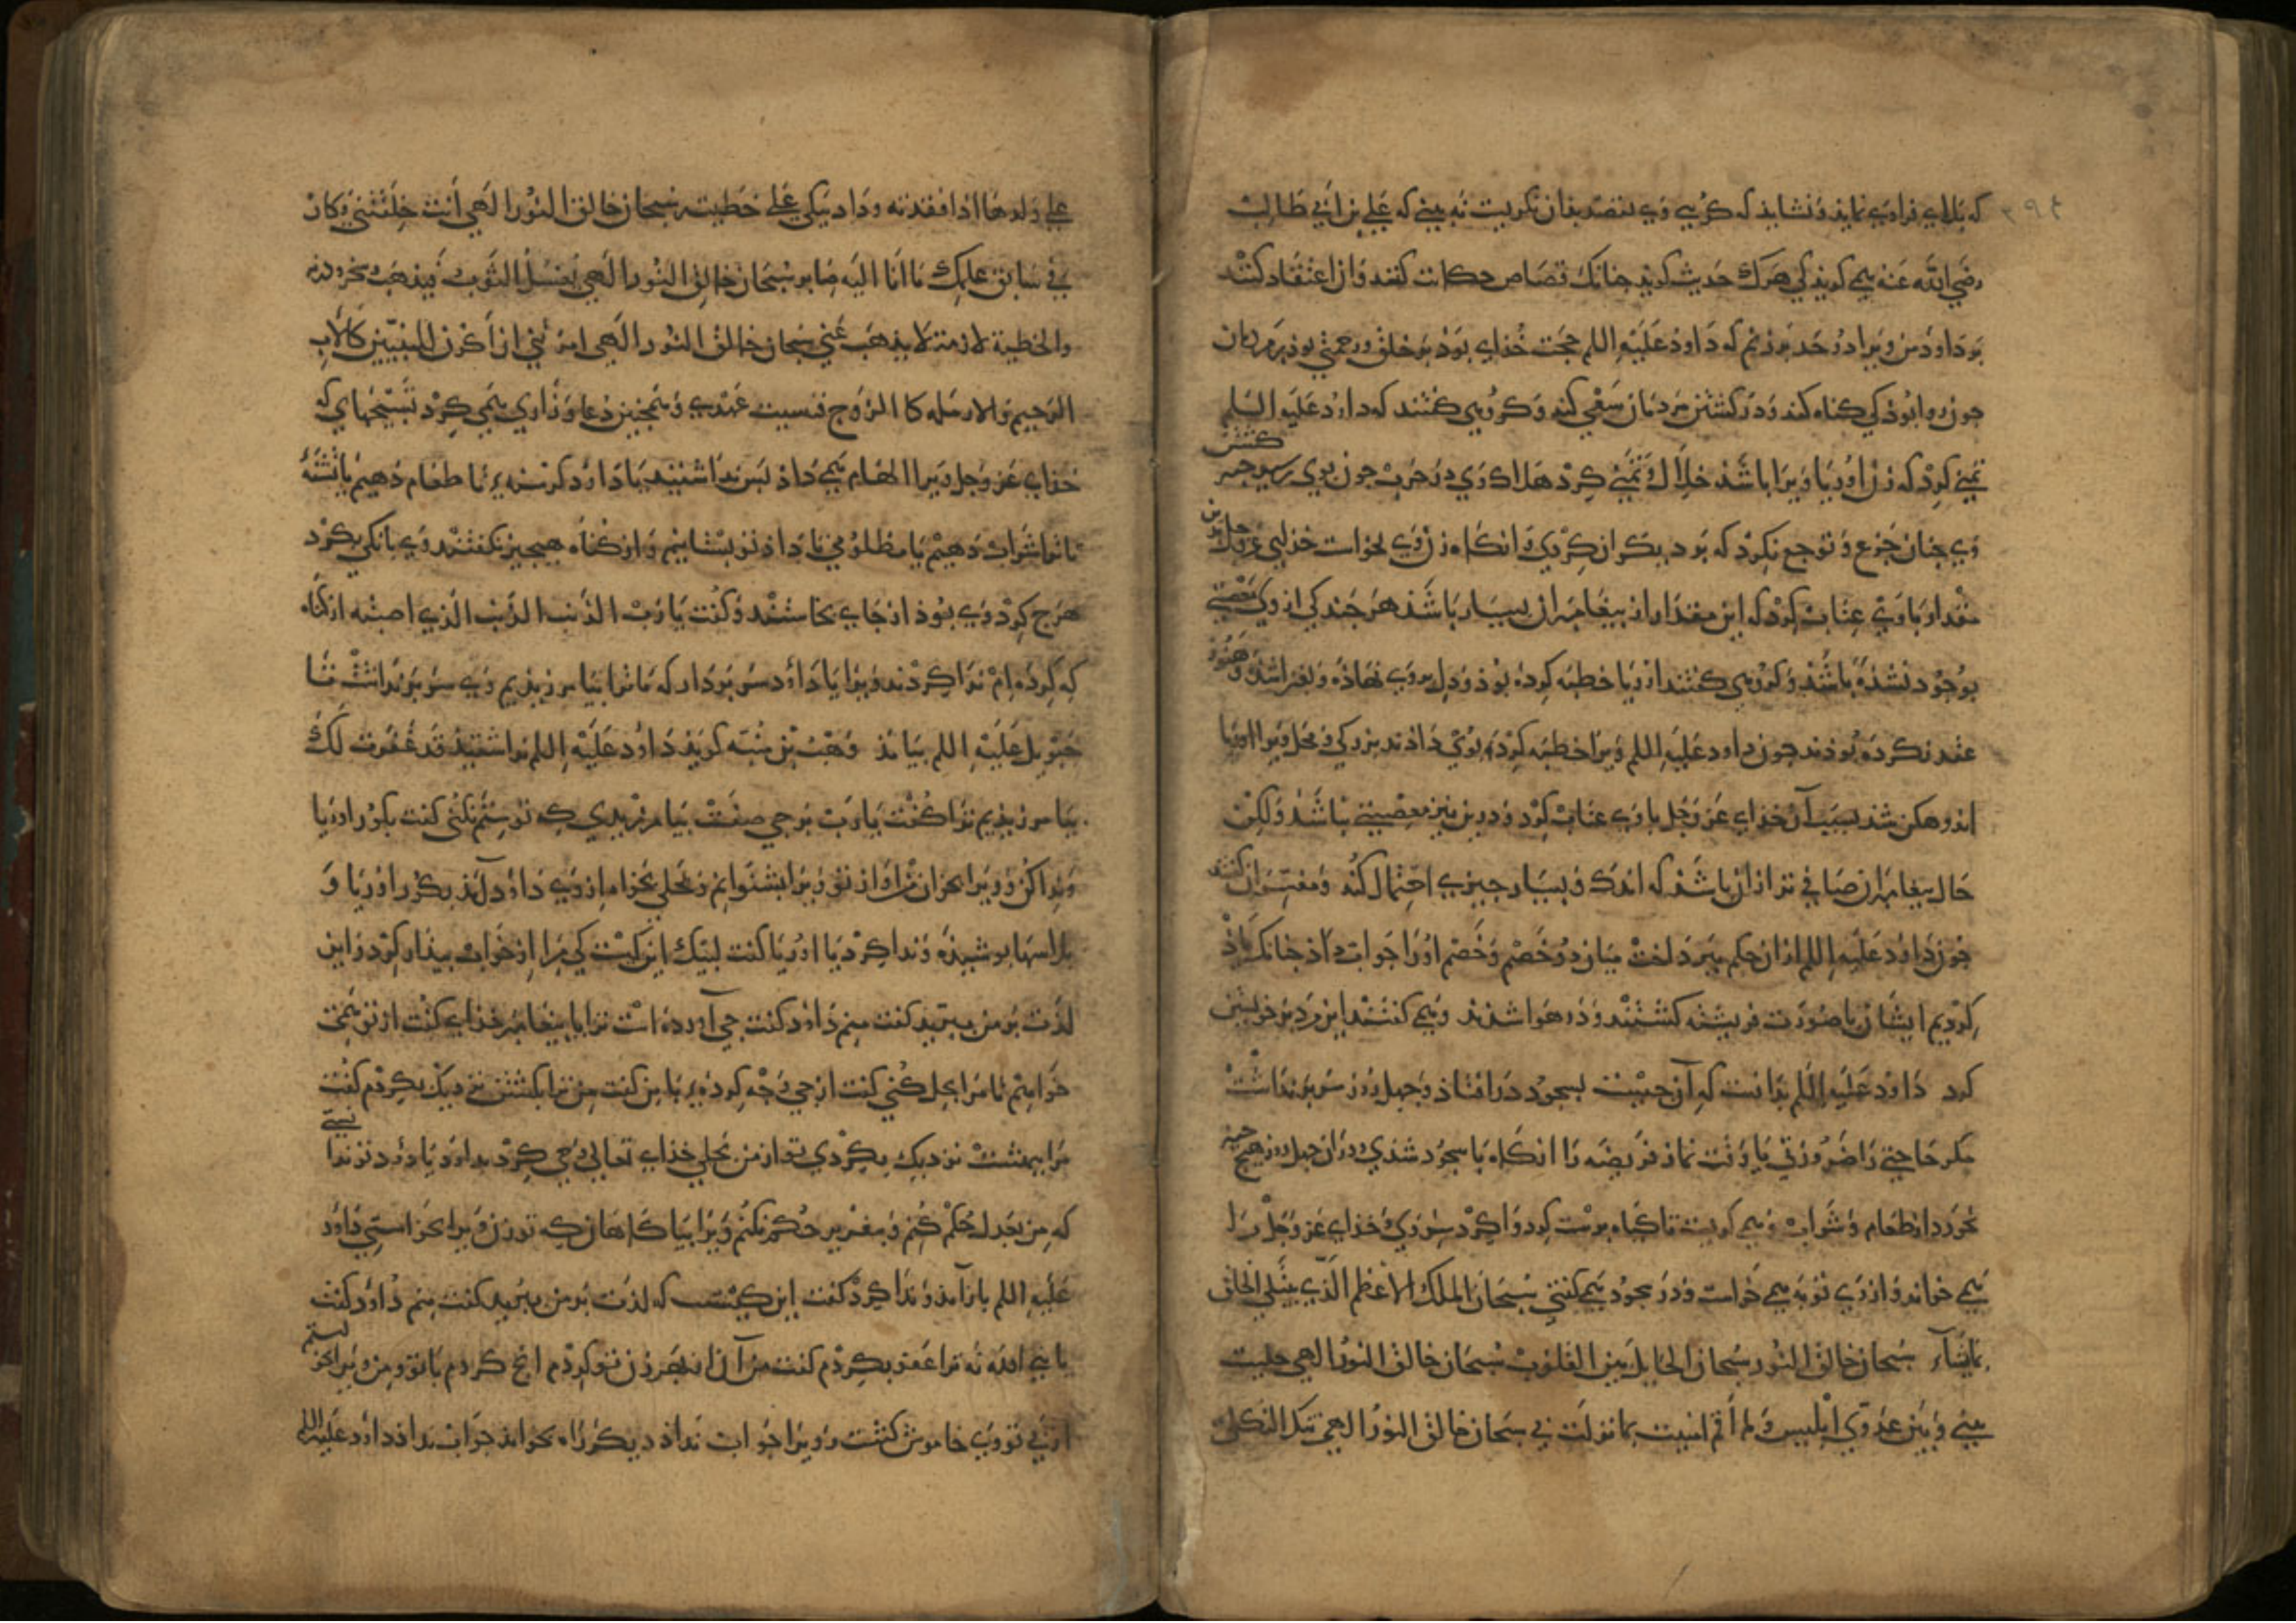 که بلای فراوی نماید و نشاید که کوئی وی بقصد بدان نکریست نه بینی که علی بن ابی طالب
رضی الله عنه می کوید کی هرک حدیث کوید جنانک قصاص حکایت کنند و از اعتقاد کنند
بر داود من ویرا دو حد بزنم که داود علیه السلم حجت خذای بوذ بر خلق و رحمتی بوذ بر مردمان
جون روا بوذ کی کناه کند و در کشتن مردمان سعی کند و کروهی کفتند که داود علیه السلم
تمنی کرد که زن اوریا ویرا باشد حلال و تمنی کرد هلاک وی در حرب جون بوی رسید خبر کشتن
وی جنان جزع و توجع نکرد که بر دیکران کردی و انکاه زن وی بخواست خذای عز و جل بدین
مقدار با وی عتاب کرد که این مقدار از بیغامبران بسیار باشد هر جند کی از وی معصیتی
بوجود نشده باشد و کروهی کفتند اوریا خطبه کرده بوذ و دل بر وی نهاده و بغزا شد و هنوز
عقد نکرده بوذند جون داود علیه السلم ویرا خطبه کرد بوی دادند بزرکی و محل ویرا اوریا
اندوهکن شد بسبب آن خذای عز و جل با وی عتاب کرد و درین نیز معصیتی نباشد ولکن
حال بیغامبران صافی تر از آن باشد که اندک و بسیار جیزی احتمال کند و مفسران کفتند
جون داود علیه السلم ازان حکم ببرداخت میان دو خصم و خصم اورا جواب داد جنانک یاذ
کردیم ایشان با صورت فریشته کشتند و در هوا شدند و می کفتند این مرد بر خویشتن
کرد داود علیه السلم بدانست که آن جیست بسجود در افتاذ و جهل روز سر بر نداشت
مکر حاجتی را ضروری یا وقت نماز فریضه را انکاه با سجود شدی و دران جهل روز هیچ جیز
نخورد از طعام و شراب و می کریست تا کیاه برست کرد و اکرد سر وی و خذای عز و جل را
می خواند و از وی توبه می خواست و در سجود می کفتی سبحان الملک الاعظم الذی یبتلی الخلق
بما یشآء سبحان خالق النور سبحان الحایل بین القلوب سبحان خالق النور الهی خلیت
بینی و بین عدوی ابلیس و لم اقم لفتنته بما نزلت بی سبحان خالق النور الهی تبکی الثکلی
علی ولدها اذا فقدته و داود یبکی علی خطیته سبحان خالق النور الهی انت خلقتنی و کان
فی سابق علمک ما انا الیه صایر سبحان خالق النور الهی یغسل الثوب فیذهب درنه
والخطیة لازمة لا یذهب عنی سبحان خالق النور الهی امرتنی ان اکون للیتیم کالاب
الرحیم و للارمله کالزوج فنسیت عهدی و همجنین دعا و زاری همی کرد تسبیحهای که
خذای عز و جل ویرا الهام می داذ بس ندا شنید یا داود کرسنه‌ء تا طعام دهیم یا تشنه‌ء
تا ترا شراب دهیم یا مظلومی تا داد تو بستانیم و از کناه هیجیز نکفتند وی بانکی بکرد
هرج کرد وی بوذ از جای بخاستند و کفت یا رب الذنب الذنب الذی اصبته از کناه
که کرده‌ام ندا کردند ویرا یا داود سر بردار که ما ترا بیامرزیذیم وی سر بر نداشت تا
جبریل علیه السلم بیامذ وهب بن منبه کوید داود علیه السلم ندا شنید قد غفرت لک
بیامرزیذیم ترا کفت یا رب بر جی صفت بیامرزیدی که تو ستم نکنی کفت بکور اوریا
و ندا کن و ویرا بخوان ندا واز تو ویرا بشنوانم و بحلی بخواه از وی داود آمد بکور اوریا و
بلاسها بوشیده و ندا کرد یا اوریا کفت لبیک این کیست کی مرا از خواب بیدار کرد و این
لذت بر من ببرید کفت منم داود کفت جی آورده است ترا یا بیغامبر خذای کفت از تو همی
خواهم تا مرا بحل کنی کفت از جی وجه کرده‌ء با من کفت من ترا بکشتن نزدیک بکردم کفت
مرا بهشت نزدیک بکردی تو از من بحلی خذای تعالی وحی کرد بداود یا داود تو ندانستی
که من بعدل حکم کنم و بتغریر حکم نکنم ویرا بیاکاهان که تو زن ویرا بخواستی داود
علیه السلم باز آمد و ندا کرد کفت این کیست که لذت بر من ببرید کفت منم داود کفت
یا نبی الله نه ترا عفو بکردم کفت من آن از بهر زن تو کردم انج کردم با تو و من ویرا بخواستم
از بی تو وی خاموش کشت و ویرا جواب نداد دیکر راه بخواند جواب نداد داود علیه السلم